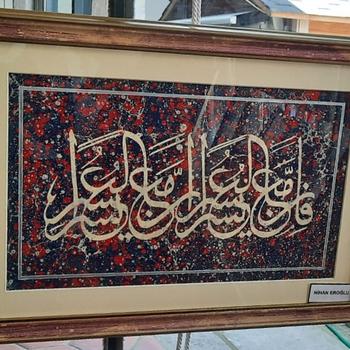 فَإِنَّ مَعَ الْعُسْرِ يُسْرًا إِنَّ مَعَ الْعُسْرِ يُسْرًا
NİHAN EROĞLU